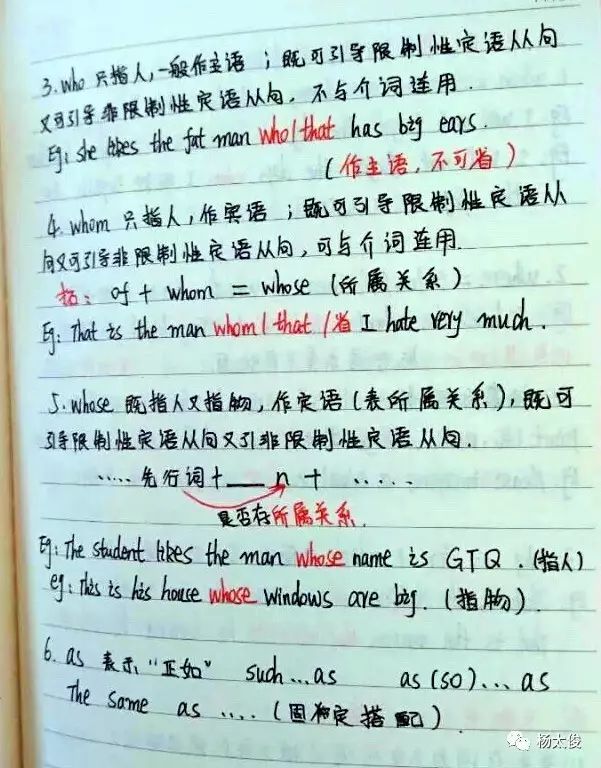 3. who 只指人,一般作主语 ;既可引导限制性定语从句
又可引导非限制性定语从句,不与介词连用.
Eg: she likes the fat man who/that has big ears.
(作主语,不可省)
4. whom 只指人,作宾语 ;既可引导限制性定语从
句又可引导非限制性定语从句,可与介词连用.
of + whom = whose (所属关系)
Eg: That is the man whom/that/省 I hate very much.
5. whose 既指人又指物,作定语(表所属关系),既可
引导限制性定语从句又引非限制性定语从句.
..... 先行词+___n + .....
是否存所属关系.
Eg: The student likes the man whose name is GTQ. (指人)
eg: This is his house whose windows are big. (指物).
6. as 表示"正如" such...as as(so)...as
The same as .... (固定搭配)
杨太俊